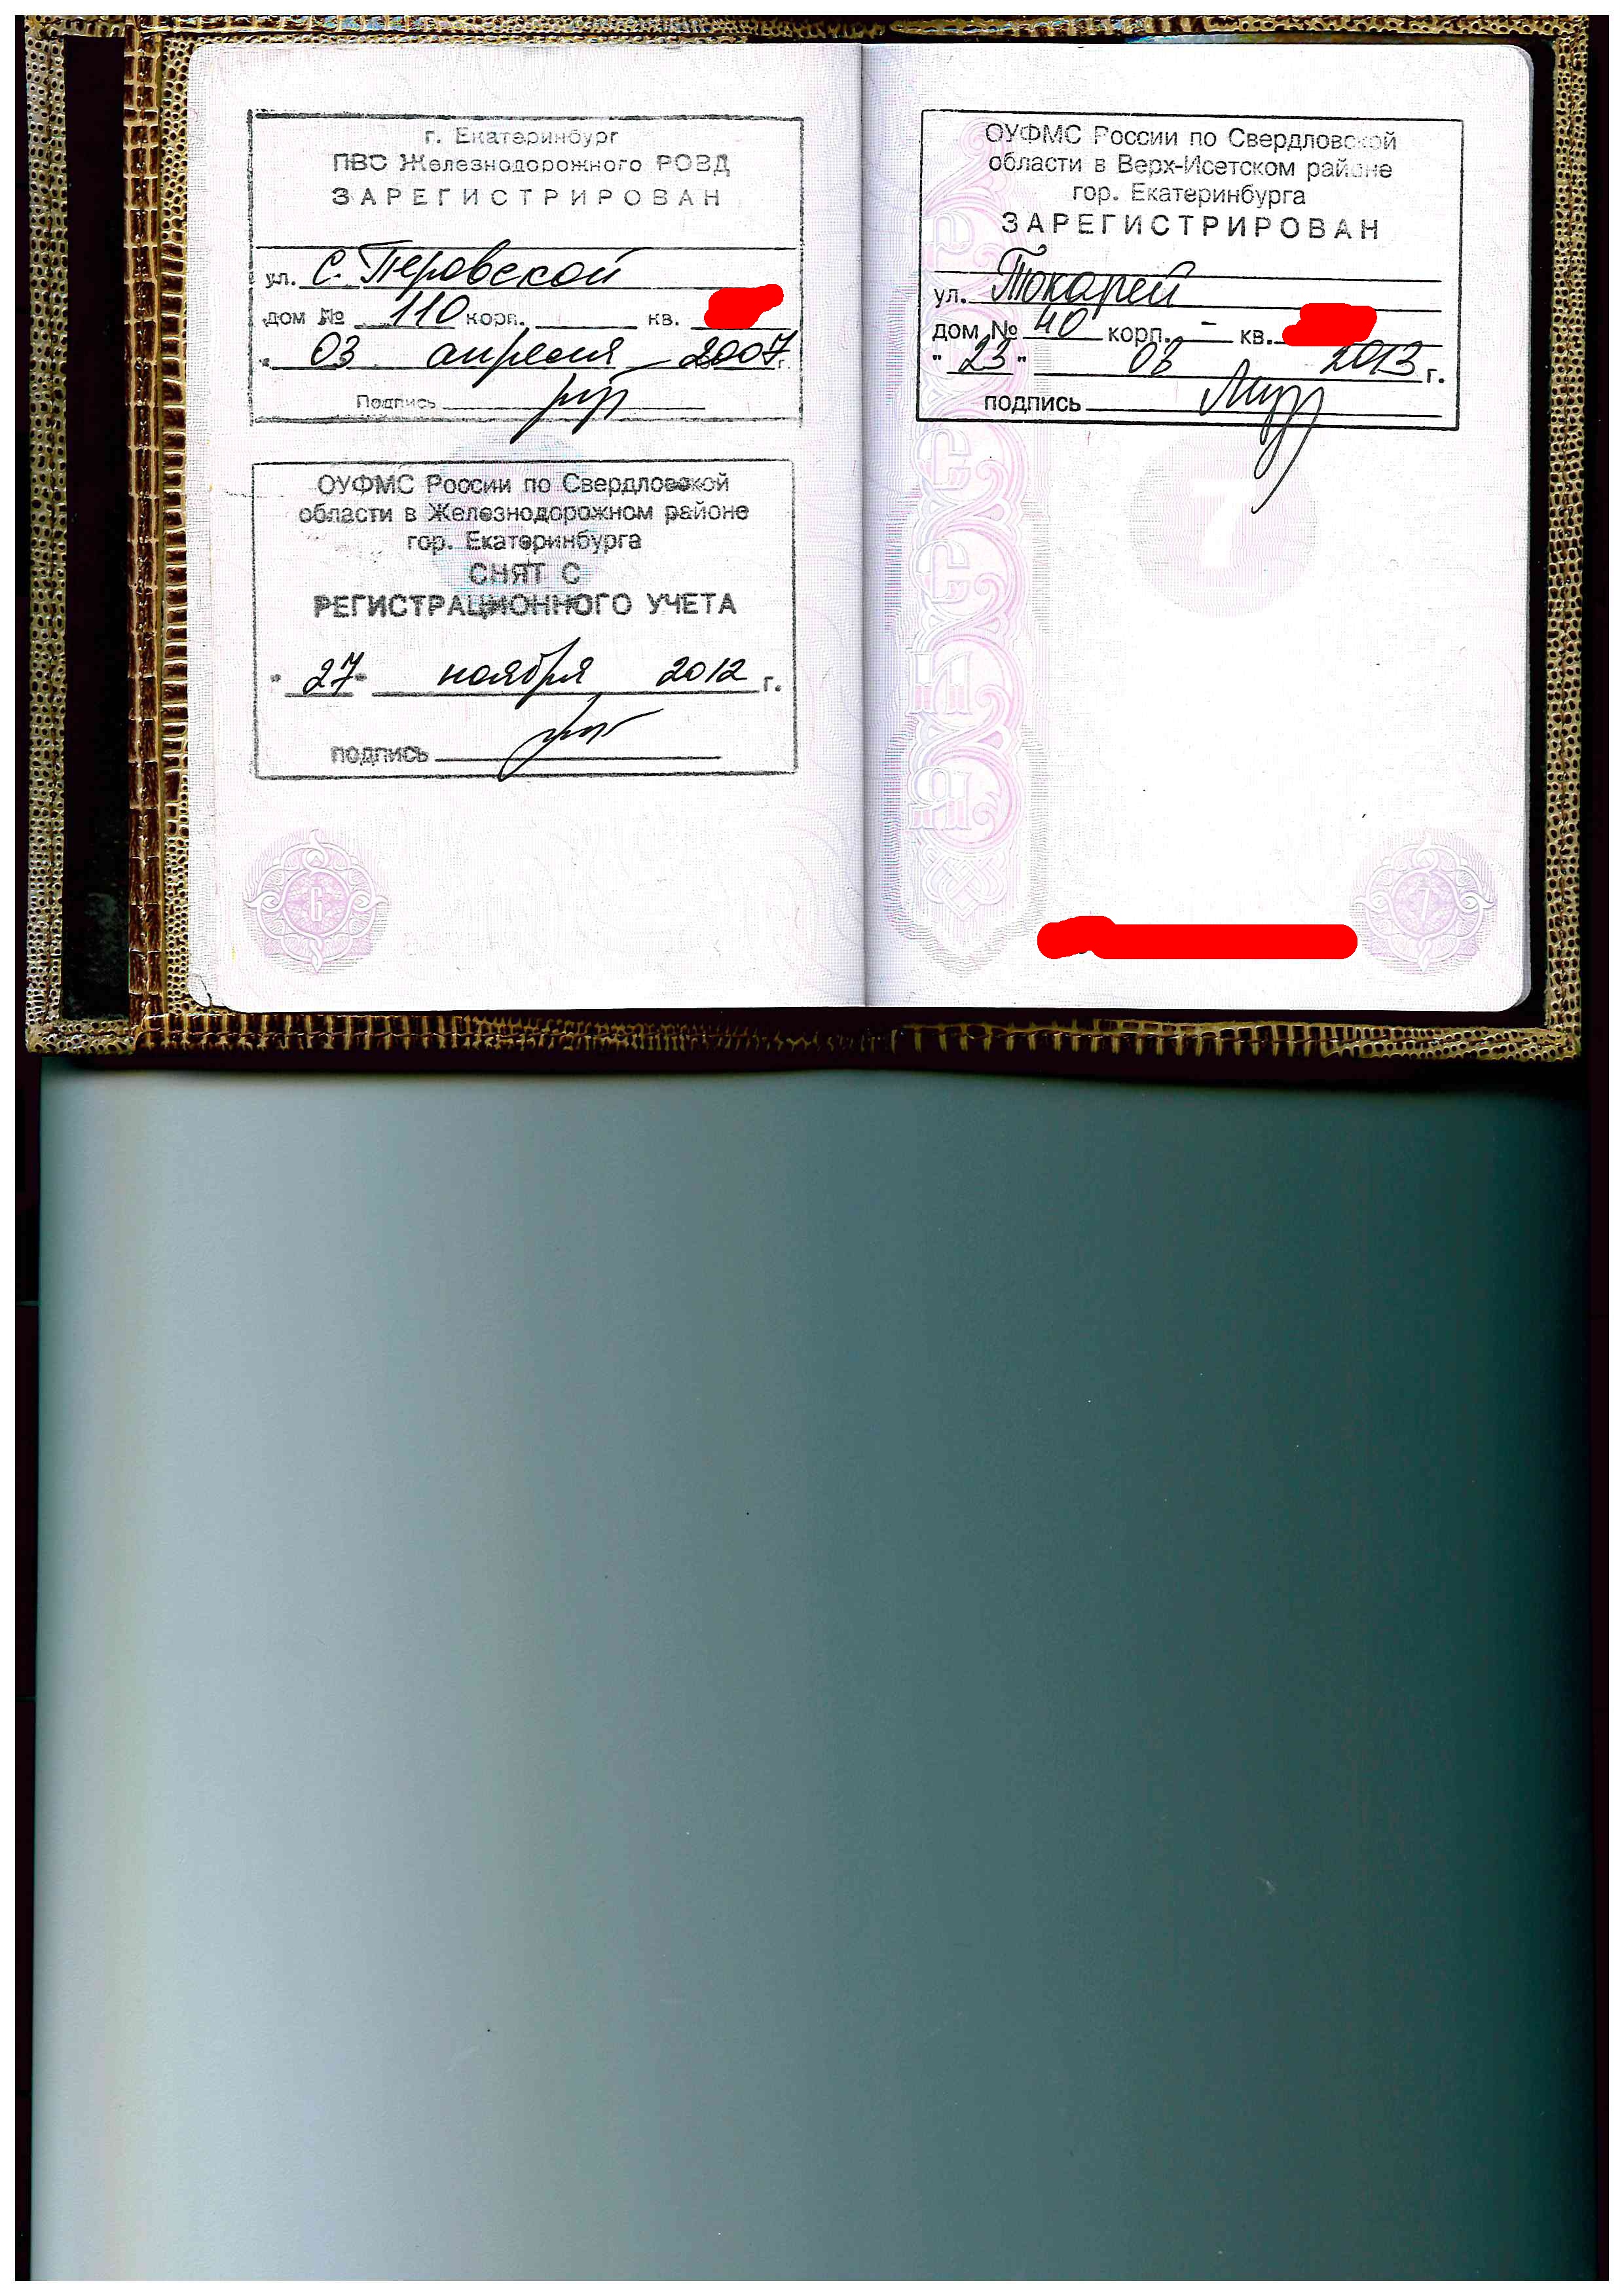 г. Екатеринбург
ПВС Железнодорожного РОВД
ЗАРЕГИСТРИРОВАН
ул. С. Перовской
дом № 110 корп. кв.
03 апреля 2007 г.
Подпись
ОУФМС России по Свердловской
области в Железнодорожном районе
гор. Екатеринбурга
СНЯТ С
РЕГИСТРАЦИОННОГО УЧЕТА
"27" ноября 2012 г.
подпись
6
ОУФМС России по Свердловской
области в Верх-Исетском районе
гор. Екатеринбурга
ЗАРЕГИСТРИРОВАН
ул. Токарей
дом № 40 корп. - кв.
"23" 03 2013 г.
подпись
7
7